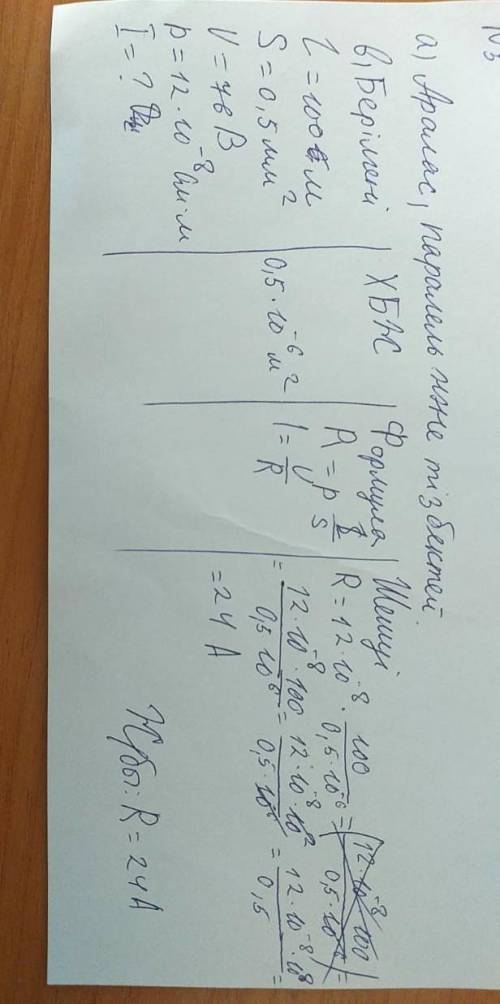 N3
а) Аралас, паралель және тізбектей.
в) Берілгені
l = 100 м
S = 0,5 мм²
U = 4в В
p = 12 · 10⁻⁸ Ом·м
I = ?
ХБЖ
0,5 · 10⁻⁶ м²
Формула
R = p l/S
I = U/R
Шешуі
R = 12 · 10⁻⁸ · 100/0,5·10⁻⁶ = (12·10⁻⁸ 100/0,5·10⁻⁶) =
= 12·10⁻⁸·100/0,5·10⁶ = 12·10⁻⁸·10²/0,5·10⁶ = 12·10⁻⁸·10⁸/0,5 =
= 24 A
Жбы: R = 24 A